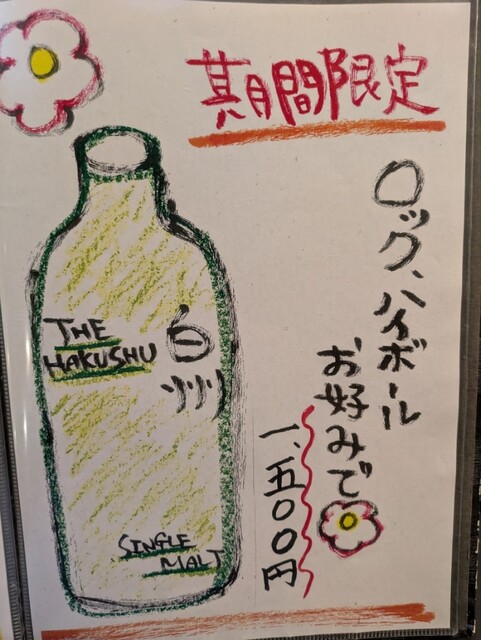 期間限定
ロック、ハイボール
お好みで
一、五〇〇円
THE
HAKUSHU
白
州
SINGLE
MALT